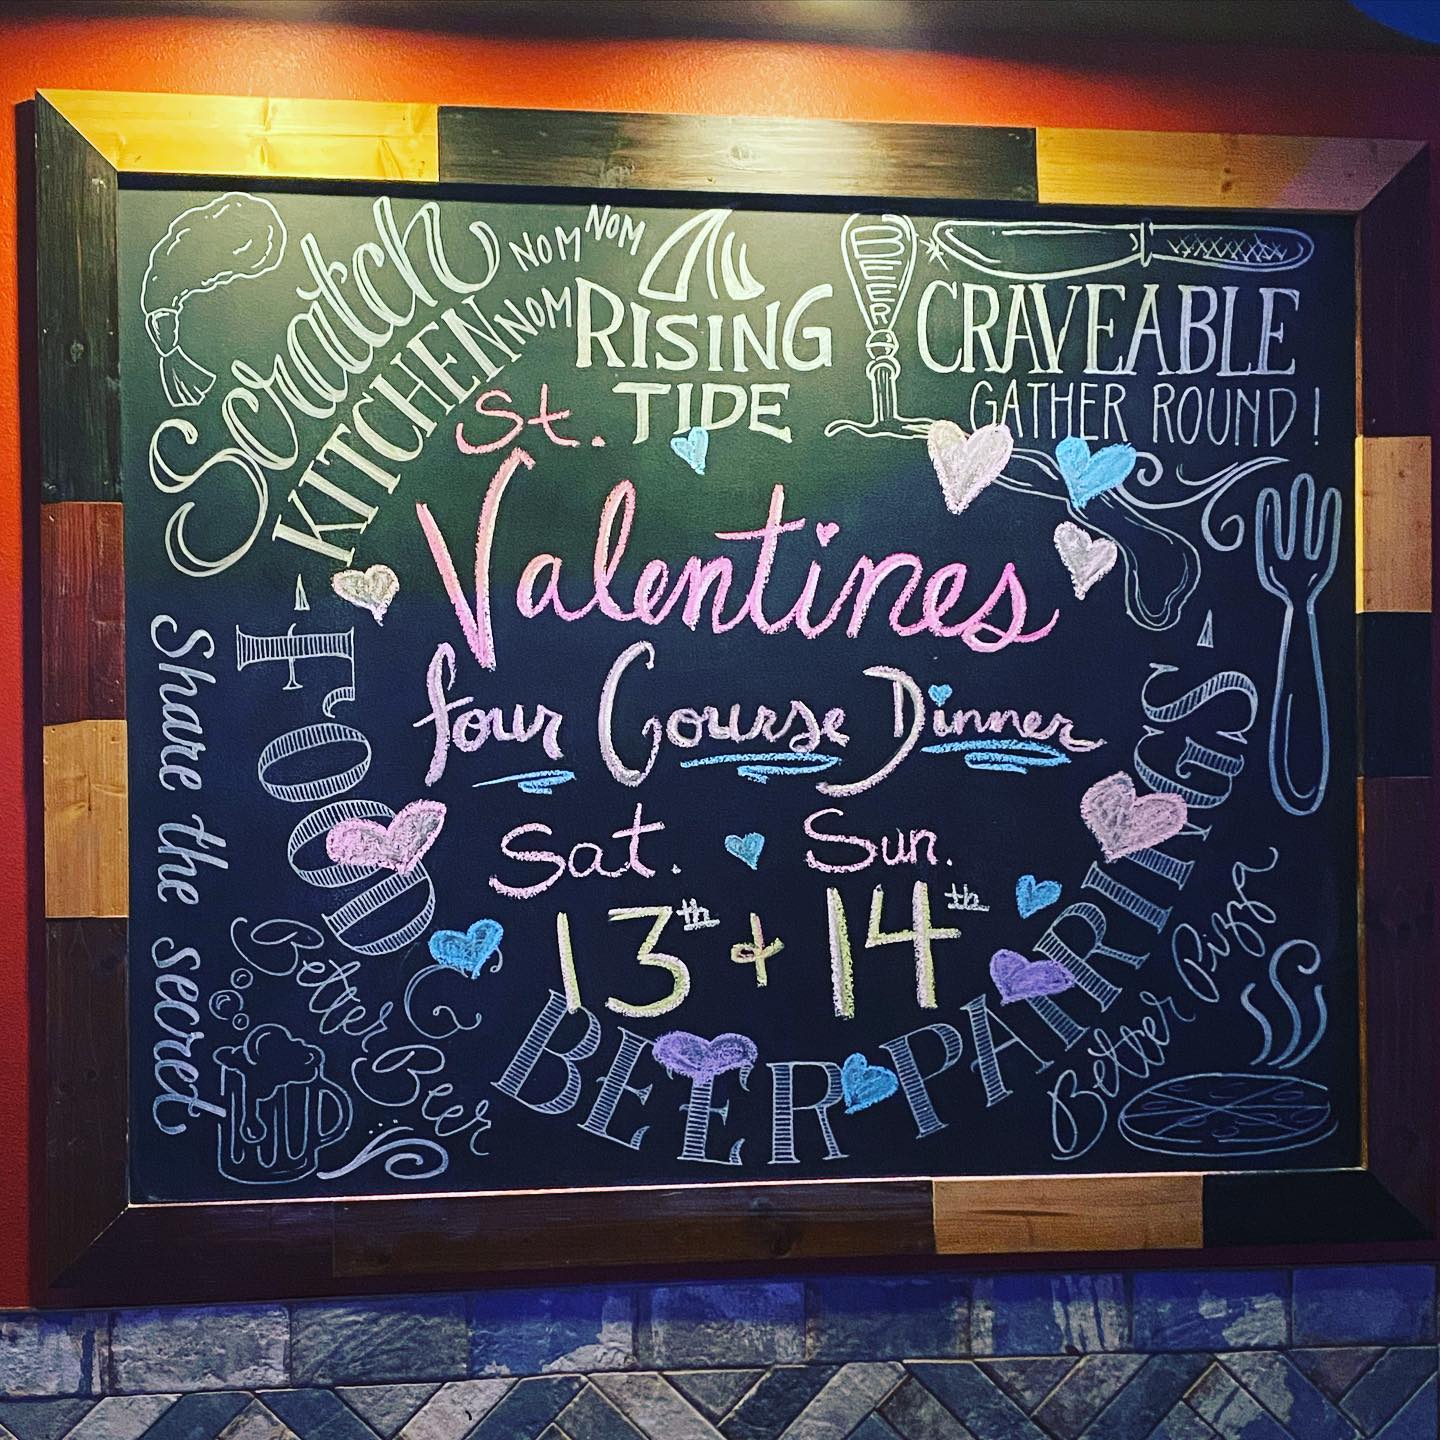 Scratch
KITCHEN
NOM NOM
NOM
RISING
TIDE
BEER
CRAVEABLE
GATHER ROUND!
St.
Valentines
four Course Dinner
Sat. Sun.
13th + 14th
Share the secret
-FOOD
&
BEER PAIRINGS-
Better Beer
Better Pizza